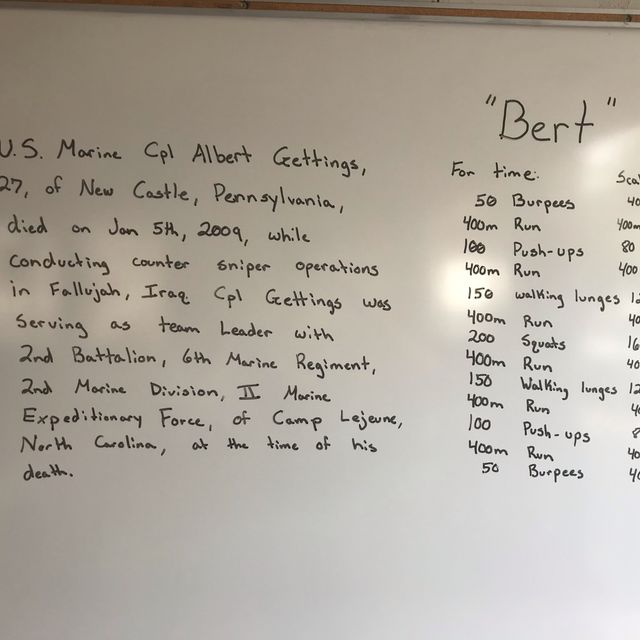 U.S. Marine Cpl Albert Gettings,
27, of New Castle, Pennsylvania,
died on Jan 5th, 2009, while
conducting counter sniper operations
in Fallujah, Iraq. Cpl Gettings was
serving as team Leader with
2nd Battalion, 6th Marine Regiment,
2nd Marine Division, II Marine
Expeditionary Force, of Camp Lejeune,
North Carolina, at the time of his
death.
"Bert"
For time:
50 Burpees
400m Run
100 Push-ups 80
400m Run 400
150 walking lunges
400m Run
200 Squats
400m Run
150 Walking lunges
400m Run
100 Push-ups
400m Run
50 Burpees